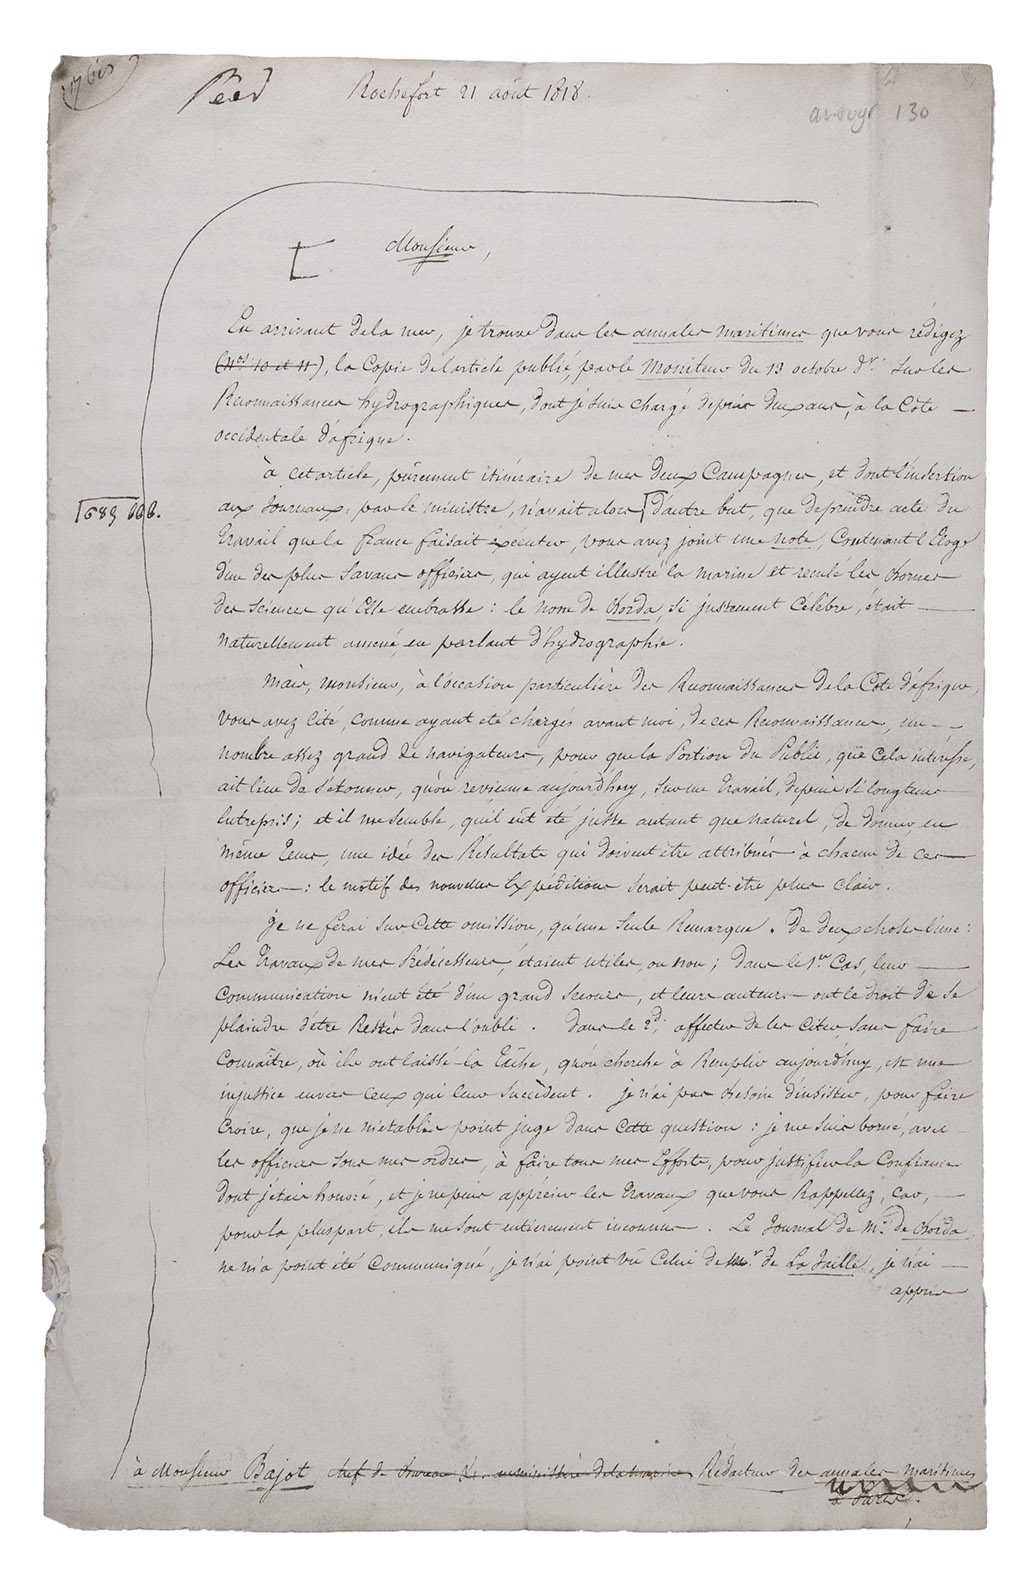 17 bis
Rochefort 21 août 1818.
130
Monsieur,
En arrivant de la mer, je trouve dans les annales maritimes que vous rédigez
(Nos 10 et 11), la Copie de l'article publié, par le Moniteur du 13 octobre dr. Sur les
Reconnaissances hydrographiques, dont je suis chargé depuis deux ans, à la Côte
occidentale d'afrique.
à cet article, purement itinéraire de mes deux Campagnes, et dont l'insertion
aux Journaux, par le ministre, n'avait alors d'autre but, que de prendre acte du
683
Travail que la france faisait exécuter, vous avez joint une note, Contenant l'Eloge
d'un des plus Savans officiers, qui ayent illustré la marine et reculé les bornes
des Sciences qu'Elle embrasse : le nom de Borda, si justement Célèbre, était
naturellement amené, en parlant d'hydrographie.
Mais, monsieur, à l'occasion particulière des Reconnaissances de la Côte d'afrique,
vous avez Cité, comme ayant été chargés avant moi, de ces Reconnaissances, un
nombre assez grand de navigateurs, pour que la Portion du Public, que Cela intéresse,
ait lieu de s'étonner, qu'on revienne aujourdhuy, sur un Travail, depuis si longtems
Entrepris; et il me semble, qu'il eût été juste autant que naturel, de donner en
même Tems, une idée des Résultats qui doivent être attribués à chacun de ces
officiers : le motif des nouvelles Expéditions serait peut-être plus clair.
je ne ferai sur Cette omission, qu'une seule Remarque. De deux choses l'une :
Les Travaux de mes Prédécesseurs, étaient utiles, ou non; dans le 1er Cas, leur
Communication m'eut été d'un grand secours, et leurs auteurs ont le droit de se
plaindre d'être Restés dans l'oubli. Dans le 2d, affecter de les Citer, sans faire
Connaître, où ils ont laissé la Tâche, qu'on cherche à Remplir aujourdhuy, est une
injustice envers ceux qui leur succèdent. je n'ai pas besoin d'insister, pour faire
Croire, que je ne m'établis point juge dans Cette question : je me suis borné, avec
les officiers sous mes ordres, à faire tous mes Efforts, pour justifier la Confiance
dont j'étais honoré, et je ne puis apprécier les Travaux que vous Rappellez, Car,
pour la pluspart, ils me sont entièrement inconnus. Le Journal de Mr. de Borda
ne m'a point été Communiqué, je n'ai point vu Celui de Mr. de La Jaille, je n'ai
appris
à Monsieur Bajot, chef de Bureau au ministère de la marine, Rédacteur des annales maritimes
à Paris.